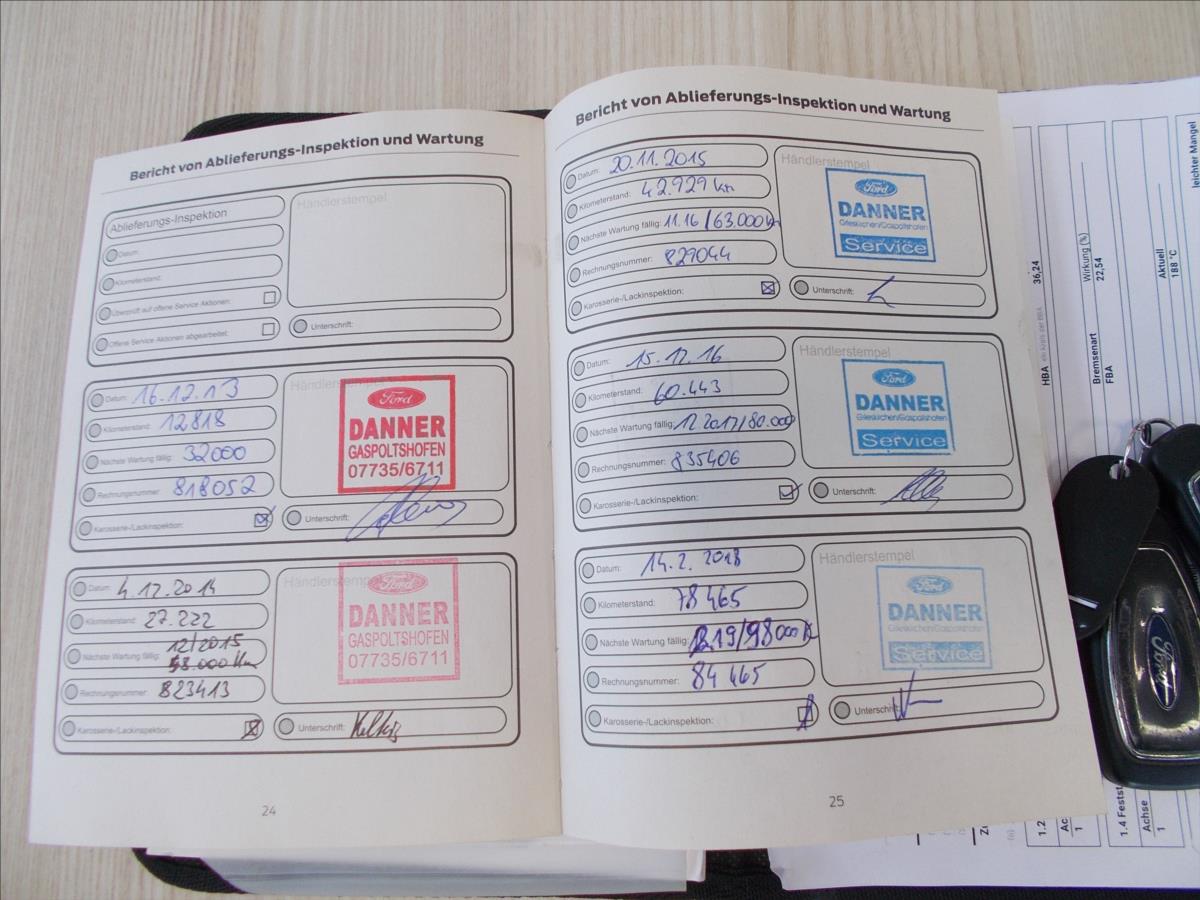 Bericht von Ablieferungs-Inspektion und Wartung
Ablieferungs-Inspektion
Händlerstempel
Datum:
Kilometerstand:
Überprüft auf offene Service Aktionen:
Offene Service Aktionen abgearbeitet:
Unterschrift:
Datum: 16.12.13
Händlerstempel
Kilometerstand: 12818
Nächste Wartung fällig: 32000
Rechnungsnummer: 818052
Karosserie-/Lackinspektion:
Ford
DANNER
GASPOLTSHOFEN
07735/6711
Unterschrift:
Datum: 4.12.2014
Händlerstempel
Kilometerstand: 27.222
Nächste Wartung fällig: 12/2015
.000 km
Rechnungsnummer: 823413
Karosserie-/Lackinspektion:
Ford
DANNER
GASPOLTSHOFEN
07735/6711
Unterschrift:
24
Bericht von Ablieferungs-Inspektion und Wartung
Datum: 20.11.2015
Händlerstempel
Kilometerstand: 42.929 km
Nächste Wartung fällig: 11.16/63.000 km
Rechnungsnummer: 829044
Karosserie-/Lackinspektion:
Ford
DANNER
Gaspoltshofen
Service
Unterschrift:
Datum: 15.12.16
Händlerstempel
Kilometerstand: 60.443
Nächste Wartung fällig: 12 2017/80.000
Rechnungsnummer: 835406
Karosserie-/Lackinspektion:
Ford
DANNER
Gaspoltshofen
Service
Unterschrift:
Datum: 14.2.2018
Händlerstempel
Kilometerstand: 78 465
Nächste Wartung fällig: 19/98 000
Rechnungsnummer: 84 465
Karosserie-/Lackinspektion:
Ford
DANNER
Gaspoltshofen
Service
Unterschrift:
25
HBA
36,24
Bremsenart
FBA
Wirkung (%)
22,54
Aktuell
188 °C
leichter Mangel
1.2
1
1.4 Festst
Achse
1
Ford